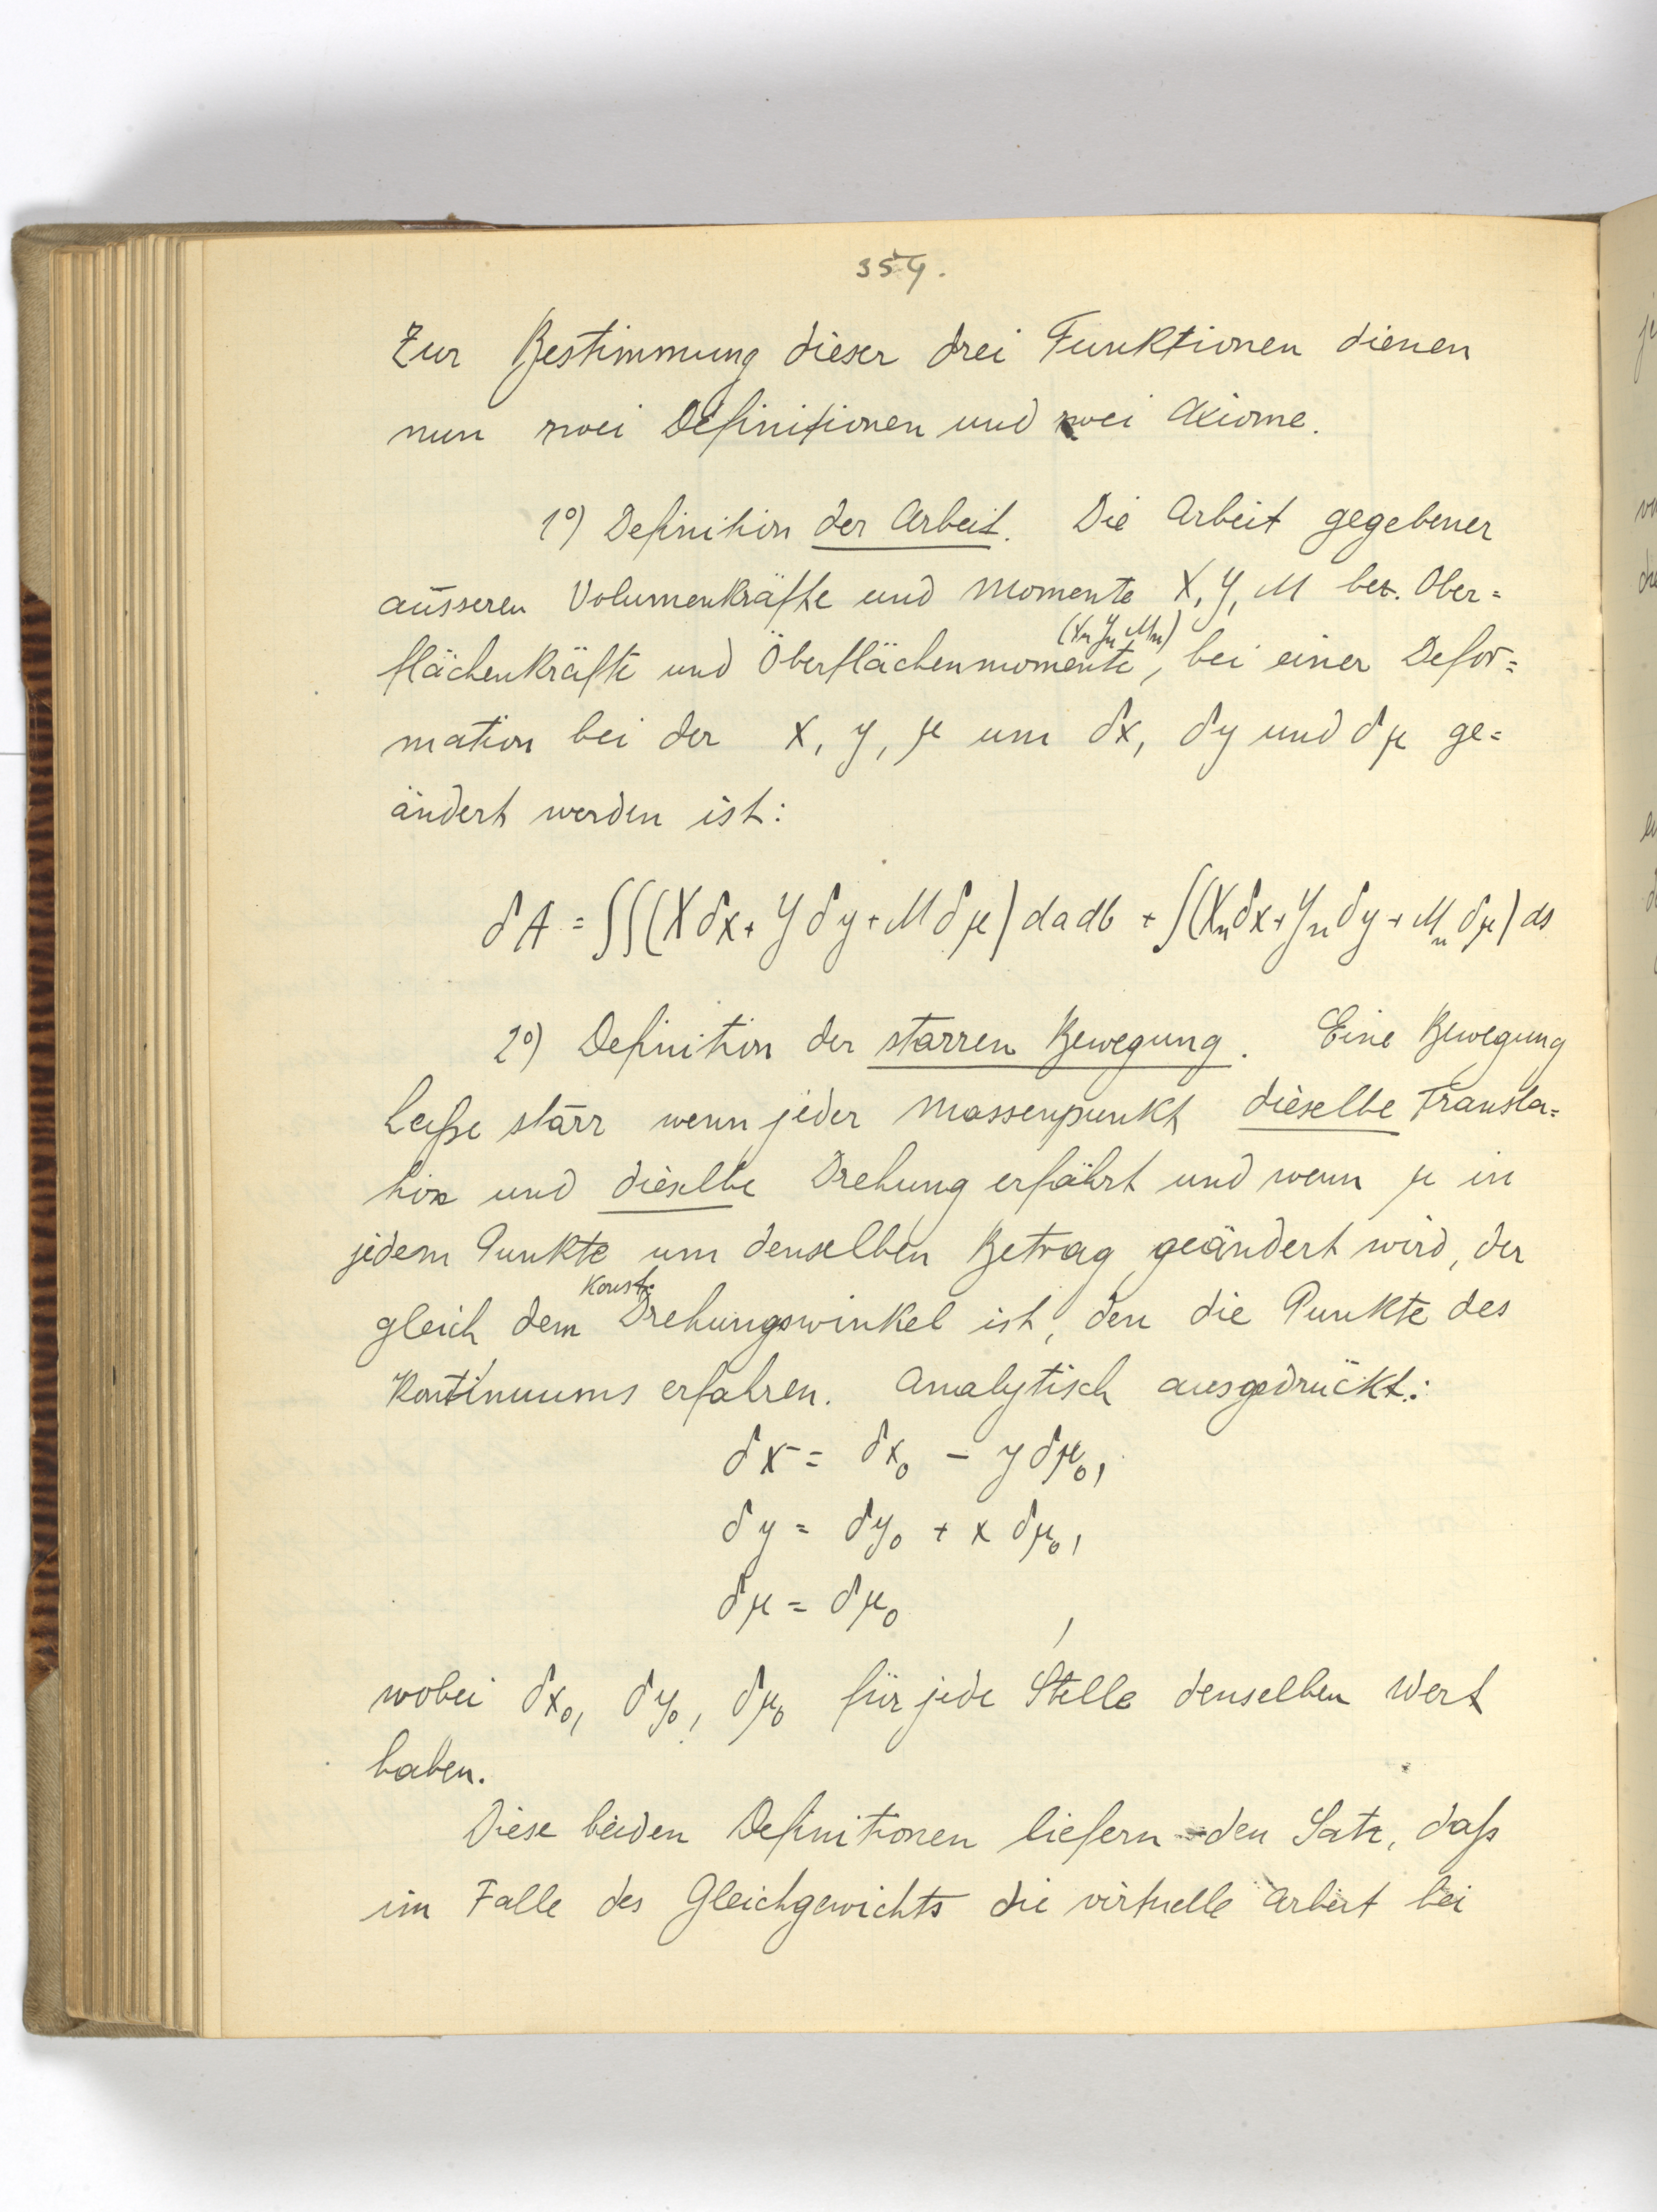 359.
Zur Bestimmung dieser drei Funktionen dienen
nun zwei Definitionen und zwei Axiome.
1º) Definition der Arbeit. Die Arbeit gegebener
äusseren Volumenkräfte und Momente X, Y, M bez. Ober=
(Xₙ Yₙ Mₙ)
flächenkräfte und Oberflächenmomente, bei einer Defor=
mation bei der x, y, μ um δx, δy und δμ ge=
ändert werden ist:
δA = ∫∫(Xδx + Yδy + Mδμ) da db + ∫(Xₙδx + Yₙδy + Mₙδμ) ds
2º) Definition der starren Bewegung. Eine Bewegung
heiße starr wenn jeder Massenpunkt dieselbe Transla=
tion und dieselbe Drehung erfährt und wenn μ in
jedem Punkte um denselben Betrag geändert wird, der
konst.
gleich dem Drehungswinkel ist, den die Punkte des
Kontinuums erfahren. Analytisch ausgedrückt:
δx = δx₀ - yδμ₀,
δy = δy₀ + xδμ₀,
δμ = δμ₀ ,
wobei δx₀, δy₀, δμ₀ für jede Stelle denselben Wert
haben.
Diese beiden Definitionen liefern den Satz, daß
im Falle des Gleichgewichts die virtuelle Arbeit bei